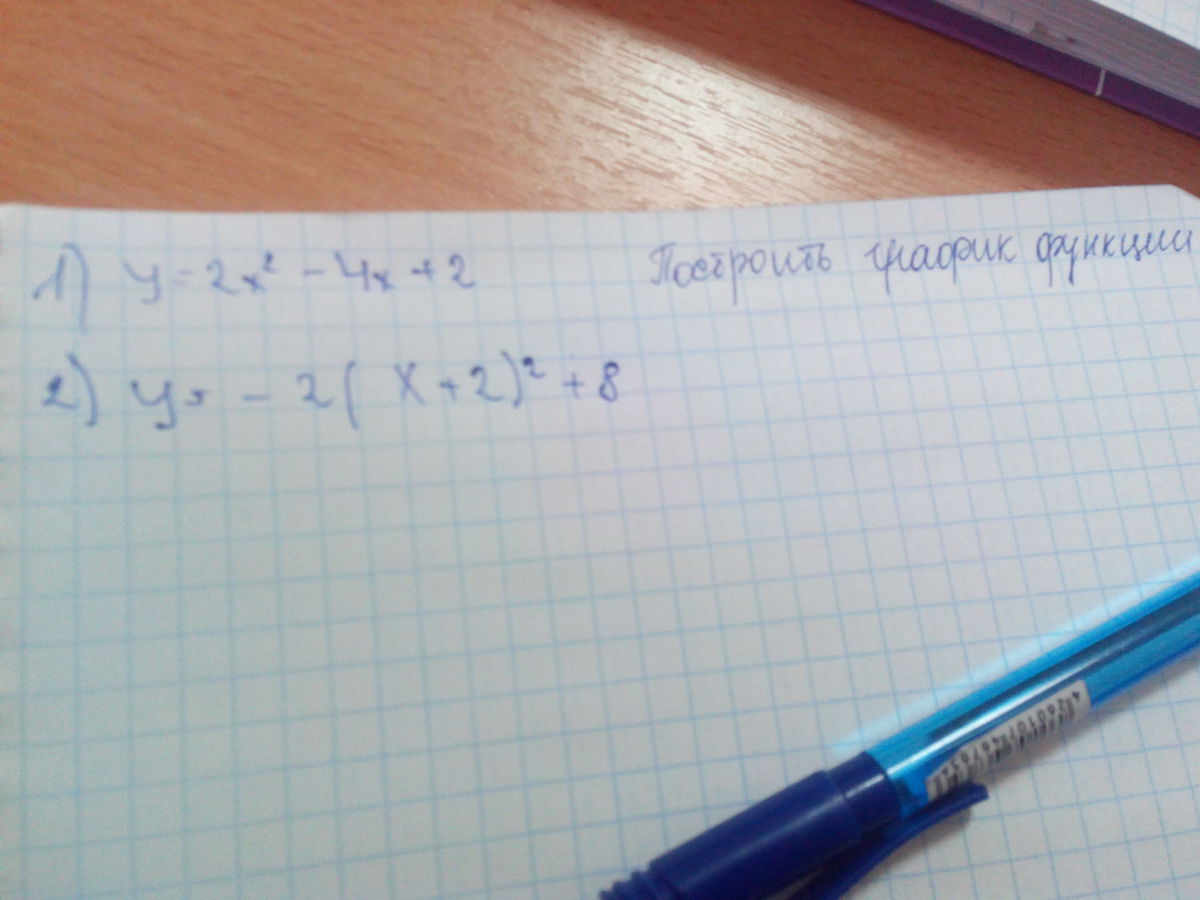 1) y = 2x² - 4x + 2 Построить график функции
2) y = - 2 ( x + 2)² + 8